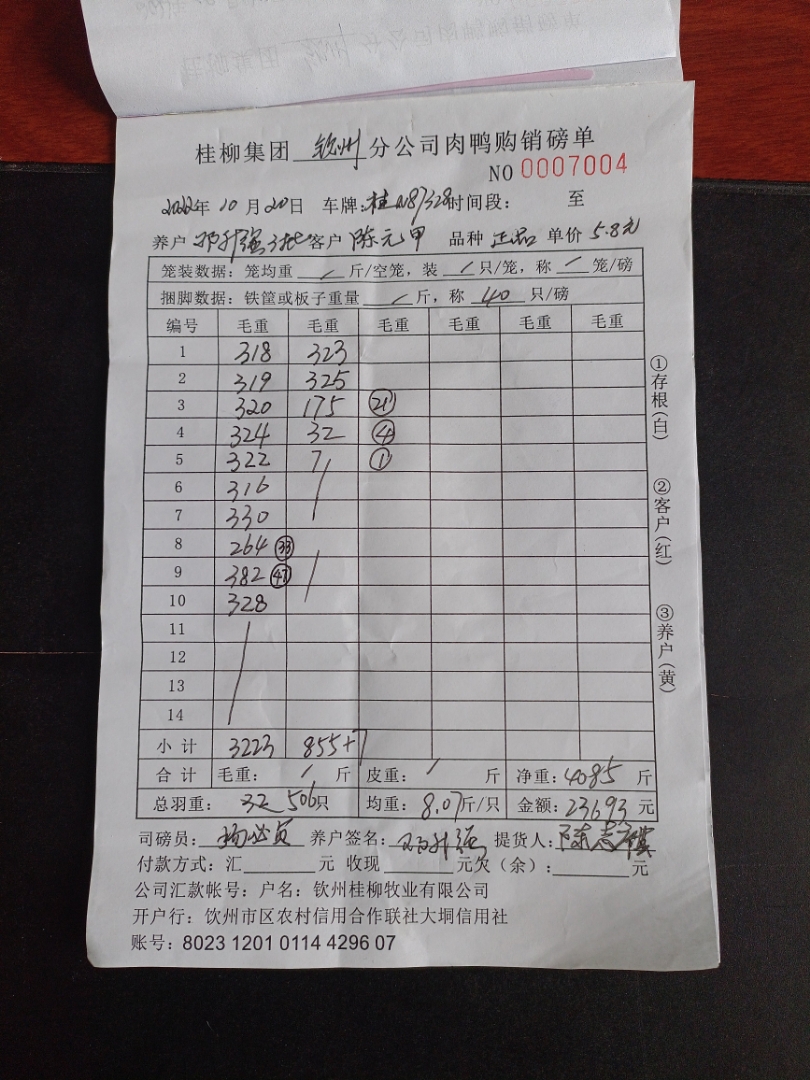 桂柳集团 钦州 分公司肉鸭购销磅单
NO 0007004
2022年 10 月 20日 车牌:桂N87328时间段: 至
养户 邓升强 客户 陈元甲 品种 正品 单价 5.8元
笼装数据: 笼均重 / 斤/空笼, 装 / 只/笼, 称 / 笼/磅
捆脚数据: 铁筐或板子重量 / 斤, 称 40 只/磅
编号 毛重 毛重 毛重 毛重 毛重 毛重
1 318 323
2 319 325
3 320 175 21
4 324 32 ④
5 322 7 ①
6 316
7 330
8 264 33
9 382 47
10 328
11
12
13
14
小计 3223 855+7
合计 毛重: / 斤 皮重: / 斤 净重: 4085 斤
总羽重: 32 506只 均重: 8.07斤/只 金额: 23693 元
司磅员: 养户签名: 邓升强 提货人: 陈志
付款方式: 汇 元 收现 元欠(余): 元
公司汇款帐号: 户名: 钦州桂柳牧业有限公司
开户行: 饮州市区农村信用合作联社大垌信用社
账号: 8023 1201 0114 4296 07
①存根(白)
②客户(红)
③养户(黄)